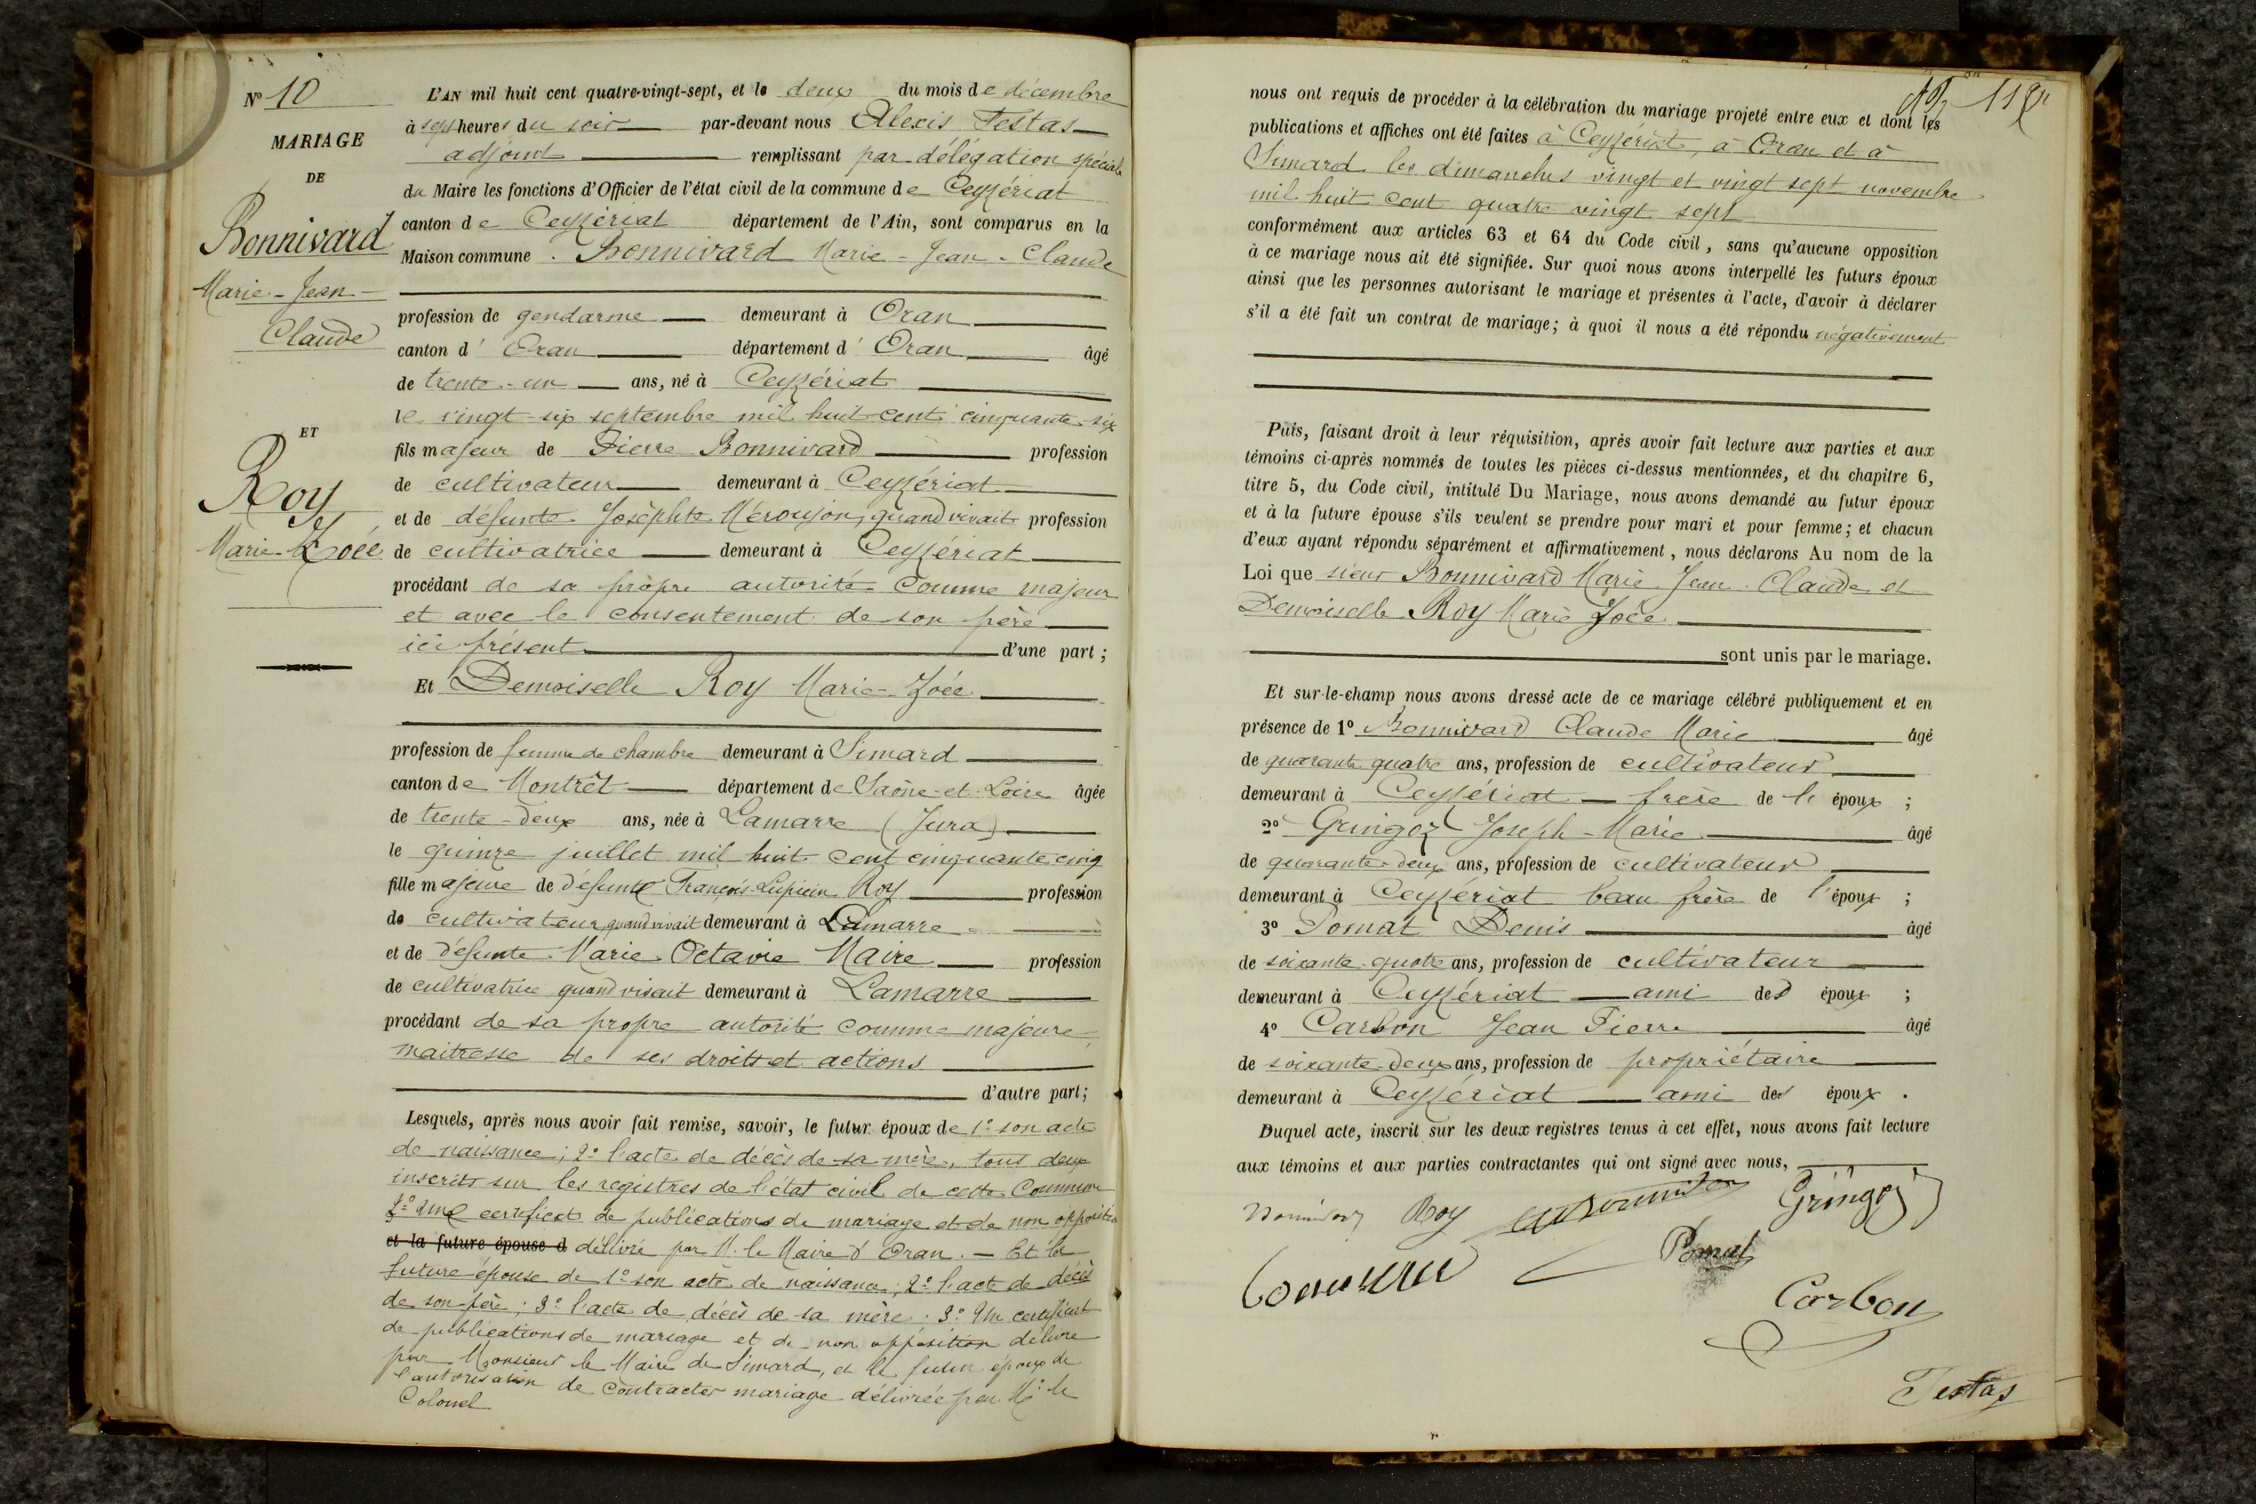 N° 10
MARIAGE
DE
Bonnivard
Marie-Jean-
Claude
ET
Roy
Marie-Zoée
L'AN mil huit cent quatre-vingt-sept, et le deux du mois de décembre
à sept heures du soir par-devant nous Alexis Testas
adjoint remplissant par délégation spéciale
du Maire les fonctions d'Officier de l'état civil de la commune de Ceyzériat
canton de Ceyzériat département de l'Ain, sont comparus en la
Maison commune. Bonnivard Marie-Jean-Claude
profession de gendarme demeurant à Oran
canton d'Oran département d'Oran âgé
de trente-un ans, né à Ceyzériat
le vingt-six septembre mil huit cent cinquante-six
fils majeur de Pierre Bonnivard profession
de cultivateur demeurant à Ceyzériat
et de défunte Josephte Néroujon, quand vivait profession
de cultivatrice demeurant à Ceyzériat
procédant de sa propre autorité comme majeur
et avec le consentement de son père
ici présent d'une part;
Et Demoiselle Roy Marie-Zoée
profession de femme de chambre demeurant à Simard
canton de Montrêt département de Saône-et-Loire âgée
de trente-deux ans, née à Lamarre (Jura)
le quinze juillet mil huit cent cinquante cinq
fille majeure de défunt François-Lupicin Roy profession
de cultivateur quand vivait demeurant à Lamarre
et de défunte Marie Octavie Maire profession
de cultivatrice quand vivait demeurant à Lamarre
procédant de sa propre autorité comme majeure
maîtresse de ses droits et actions
d'autre part;
Lesquels, après nous avoir fait remise, savoir, le futur époux de 1° son acte
de naissance; 2° l'acte de décès de sa mère, tous deux
inscrits sur les registres de l'état civil de cette Commune
certificat de publications de mariage et de non opposition
et la future épouse d délivré par M. le Maire d'Oran. — Et la
future épouse de 1° son acte de naissance; 2° l'acte de décès
de son père; 3° l'acte de décès de sa mère; 3° Un certificat
de publications de mariage et de non opposition délivré
par Monsieur le Maire de Simard, et le futur époux de
l'autorisation de contracter mariage délivrée par Mr le
Colonel
118
nous ont requis de procéder à la célébration du mariage projeté entre eux et dont les
publications et affiches ont été faites à Ceyzériat, à Oran et à
Simard les dimanches vingt et vingt sept novembre
mil huit cent quatre vingt sept
conformément aux articles 63 et 64 du Code civil, sans qu'aucune opposition
à ce mariage nous ait été signifiée. Sur quoi nous avons interpellé les futurs époux
ainsi que les personnes autorisant le mariage et présentes à l'acte, d'avoir à déclarer
s'il a été fait un contrat de mariage; à quoi il nous a été répondu négativement
Puis, faisant droit à leur réquisition, après avoir fait lecture aux parties et aux
témoins ci-après nommés de toutes les pièces ci-dessus mentionnées, et du chapitre 6,
titre 5, du Code civil, intitulé Du Mariage, nous avons demandé au futur époux
et à la future épouse s'ils veulent se prendre pour mari et pour femme; et chacun
d'eux ayant répondu séparément et affirmativement, nous déclarons Au nom de la
Loi que sieur Bonnivard Marie Jean-Claude et
Demoiselle Roy Marie Zoée
sont unis par le mariage.
Et sur-le-champ nous avons dressé acte de ce mariage célébré publiquement et en
présence de 1° Bonnivard Claude Marie âgé
de quarante quatre ans, profession de cultivateur
demeurant à Ceyzériat frère de l'époux;
2° Gringoz Joseph-Marie âgé
de quarante-deux ans, profession de cultivateur
demeurant à Ceyzériat beau frère de l'époux;
3° Pomat Denis âgé
de soixante quatre ans, profession de cultivateur
demeurant à Ceyzériat ami des époux;
4° Carbon Jean Pierre âgé
de soixante-deux ans, profession de propriétaire
demeurant à Ceyzériat ami des époux.
Duquel acte, inscrit sur les deux registres tenus à cet effet, nous avons fait lecture
aux témoins et aux parties contractantes qui ont signé avec nous,
Roy
Gringoz
Pomat
Carbon
Testas